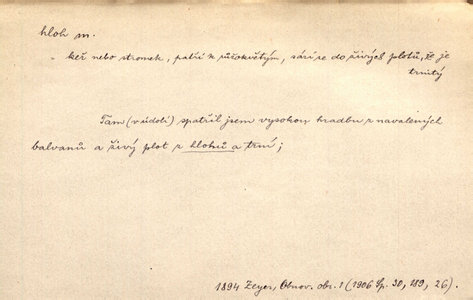 hloh m.
keř nebo stromek, patří k růžokvětým, sází se do živých plotů, že je
trnitý
Tam (v údolí) spatřil jsem vysokou hradbu z navalených
balvanů a živý plot z hlohů a trní;
1894 Zeyer, Obnov. obr. 1 (1906 Sp. 30, 189, 26).